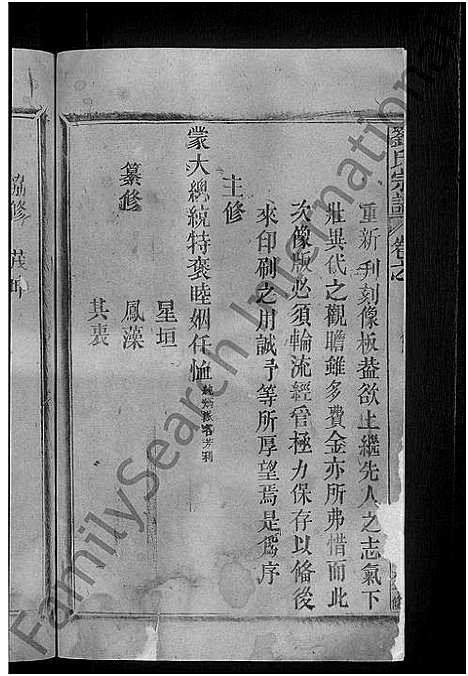 劉氏宗譜 卷之
重新刋刻像板葢欲上繼先人之志氣下
壯異代之觀瞻雖多費金亦所弗惜而此
次像版必須輪流經管極力保存以備後
來印刷之用誠予等所厚望焉是爲序
主修
蒙大總統特褒睦婣任恤
星垣
纂修
鳳藻
其衷
協修
FamilySearch International